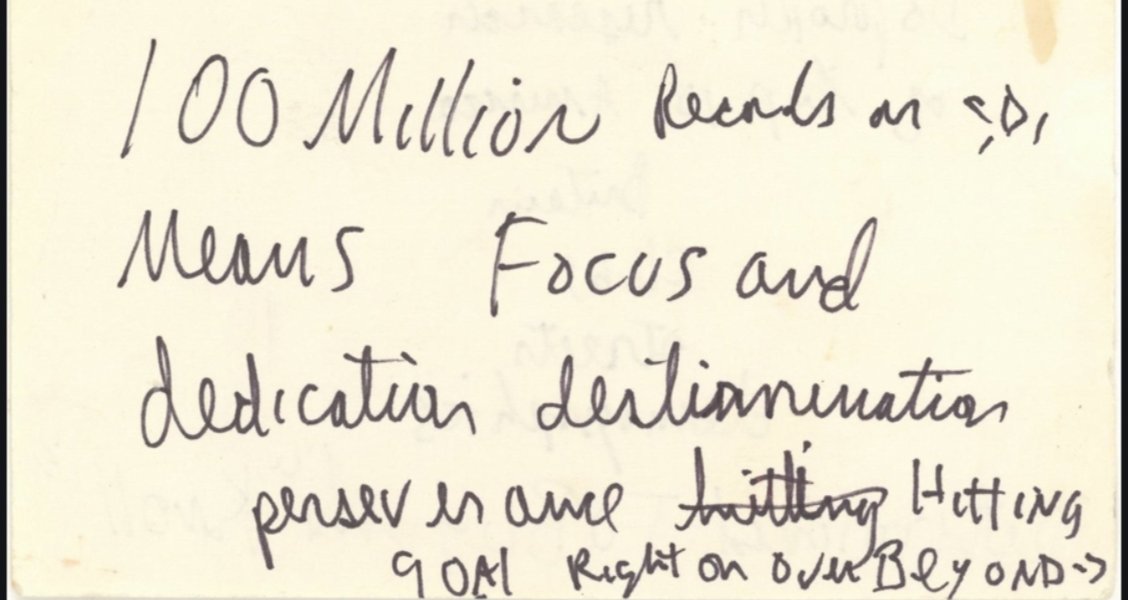 100 Million Records or C,D,
Means Focus and
dedication destianunation
perserverance hitting Hitting
GOAl Right on over BeyOND ->